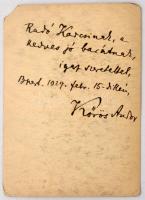 Radó Karcsinak, a
kedves jó barátnak,
igaz szeretettel,
Bpest. 1929. febr. 15-dikén,
Kőrös Andor